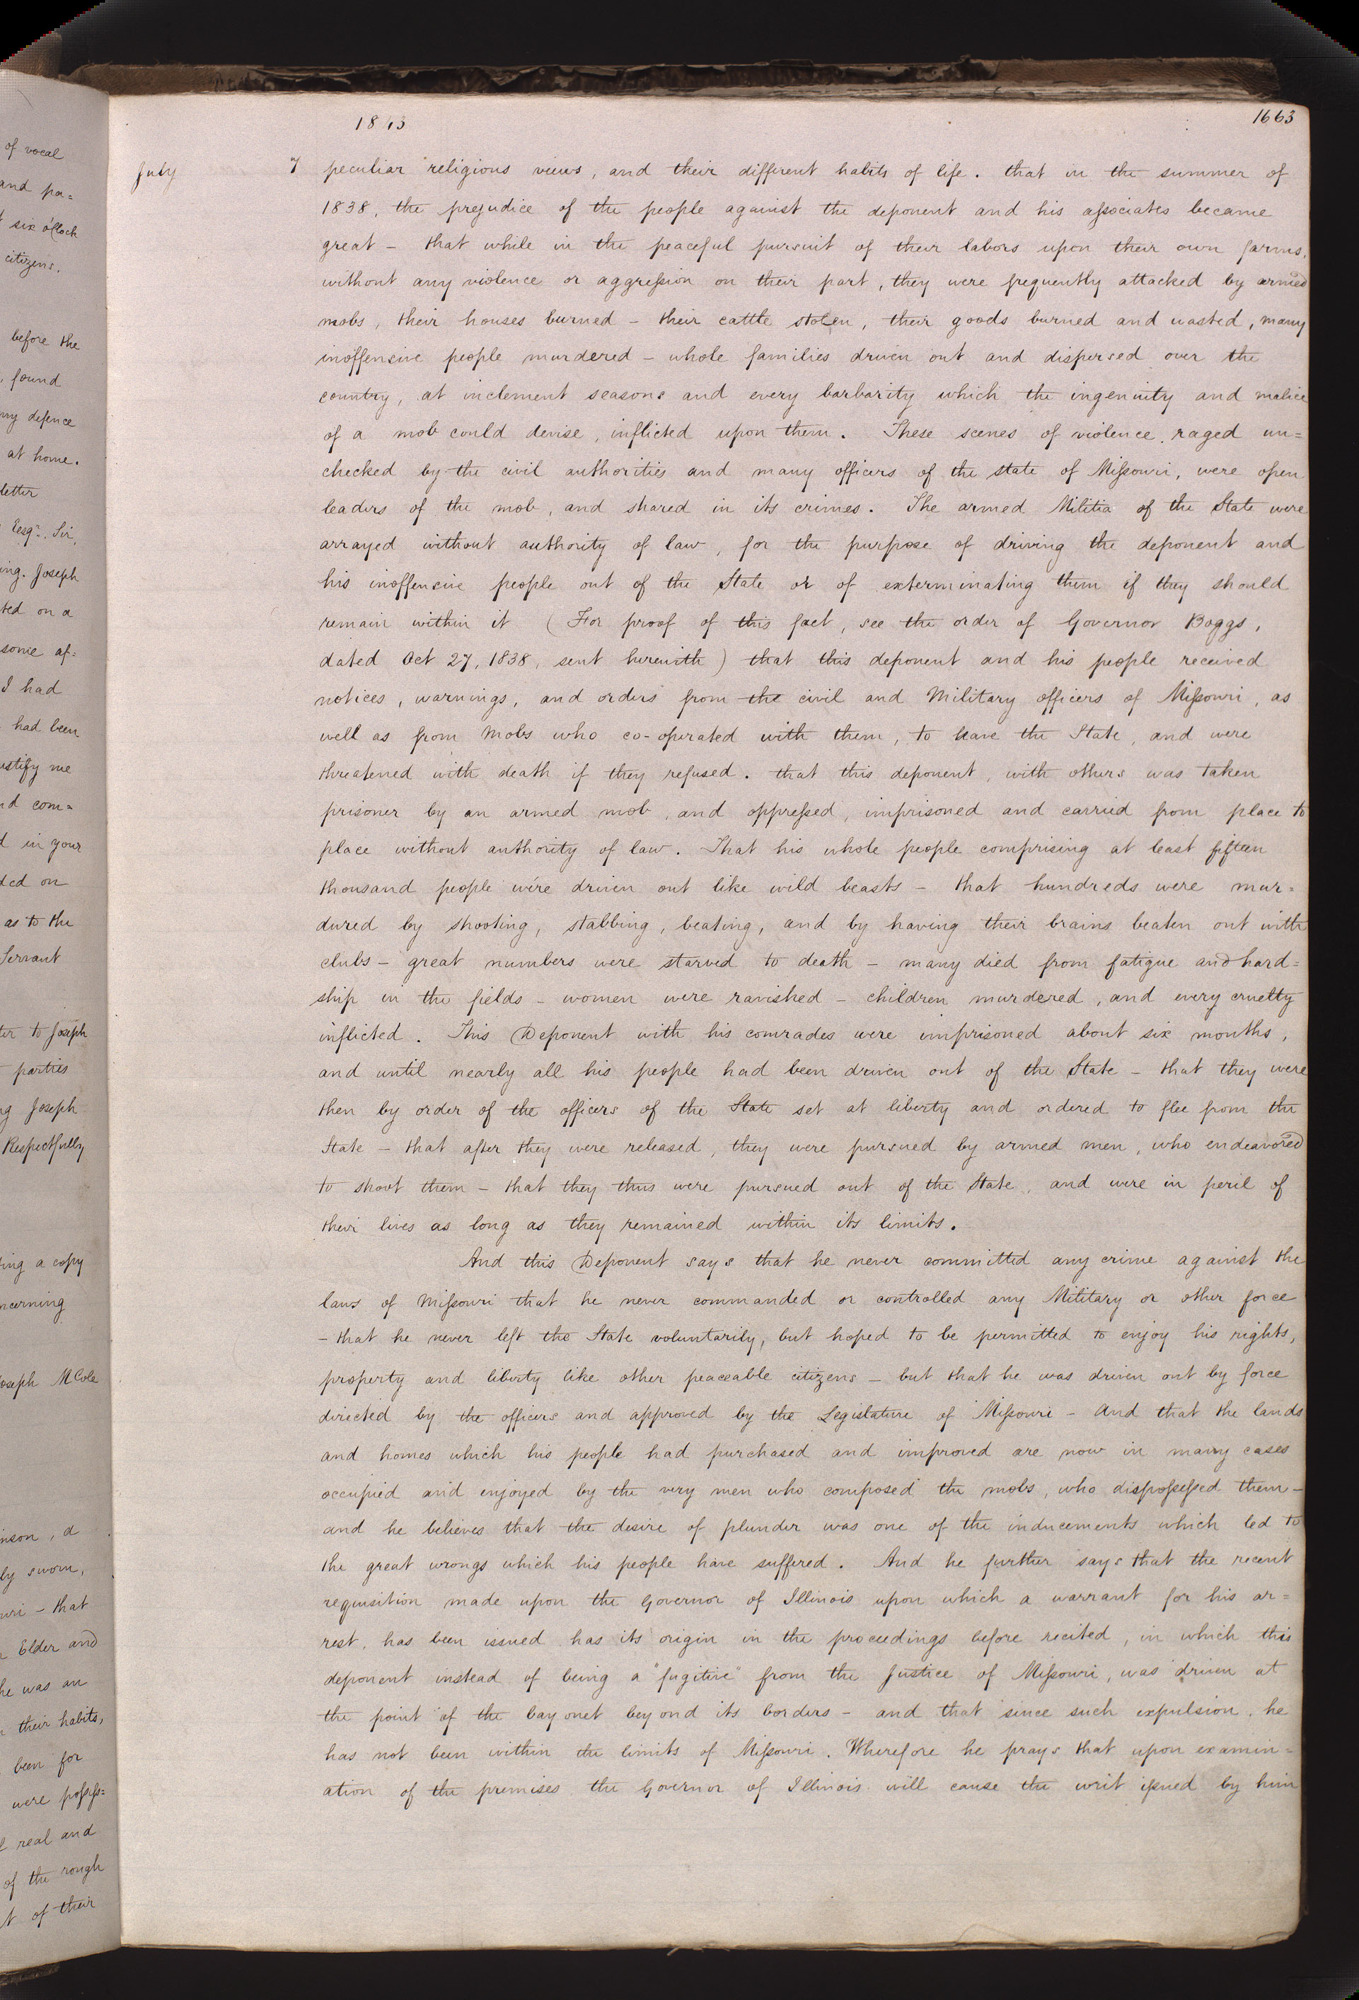 1843
1663
July 7 peculiar religious views, and their different habits of life. that in the summer of
1838, the prejudice of the people against the deponent and his associates became
great – that while in the peaceful pursuit of their labors upon their own farms,
without any violence or aggression on their part, they were frequently attacked by armed
mobs, their houses burned – their cattle stolen, their goods burned and wasted, many
inoffensive people murdered – whole families driven out and dispersed over the
country, at inclement seasons and every barbarity which the ingenuity and malice
of a mob could devise, inflicted upon them. These scenes of violence raged un=
checked by the civil authorities and many officers of the state of Missouri, were open
leaders of the mob, and shared in its crimes. The armed Militia of the State were
arrayed without authority of law, for the purpose of driving the deponent and
his inoffensive people out of the State or of exterminating them if they should
remain within it (For proof of this fact, see the order of Governor Boggs,
dated Oct 27, 1838, sent herewith) that this deponent and his people received
notices, warnings, and orders from the civil and Military officers of Missouri, as
well as from Mobs who co-operated with them, to leave the State, and were
threatened with death if they refused. that this deponent, with others was taken
prisoner by an armed mob, and oppressed, imprisoned and carried from place to
place without authority of law. That his whole people comprising at least fifteen
thousand people were driven out like wild beasts – that hundreds were mur=
dured by shooting, stabbing, beating, and by having their brains beaten out with
clubs – great numbers were starved to death – many died from fatigue and hard=
ship in the fields – women were ravished – children murdered, and every cruelty
inflicted. This Deponent with his comrades were imprisoned about six months,
and until nearly all his people had been driven out of the State – that they were
then by order of the officers of the State set at liberty and ordered to flee from the
State – that after they were released, they were pursued by armed men, who endeavored
to shoot them – that they thus were pursued out of the State, and were in peril of
their lives as long as they remained within its limits.
And this Deponent says that he never committed any crime against the
laws of Missouri that he never commanded or controlled any Military or other force
– that he never left the State voluntarily, but hoped to be permitted to enjoy his rights,
property and liberty like other peaceable citizens – but that he was driven out by force
directed by the officers and approved by the Legislature of Missouri – And that the lands
and homes which his people had purchased and improved are now in many cases
occupied and enjoyed by the very men who composed the mobs, who dispossessed them –
and he believes that the desire of plunder was one of the inducements which led to
the great wrongs which his people have suffered. And he further says that the recent
requisition made upon the Governor of Illinois upon which a warrant for his ar=
rest, has been issued has its origin in the proceedings before recited, in which this
deponent instead of being a "fugitive" from the Justice of Missouri, was driven at
the point of the bayonet beyond its borders – and that since such expulsion, he
has not been within the limits of Missouri. Wherefore he prays that upon examin=
ation of the premises the Governor of Illinois will cause the writ issued by him
of vocal
and pa=
six o'clock
citizens.
before the
found
my defence
at home.
letter
Esqr. Sir,
ing. Joseph
ted on a
some af=
I had
had been
justify me
nd com=
d in your
ded on
as to the
Servant
ter to Joseph
parties
ng Joseph
Respectfully
ing a copy
ncerning
Joseph McCole
inson, d
ly sworn,
uri – that
n Elder and
he was an
n their habits,
been for
were possess=
l real and
of the rough
t of their